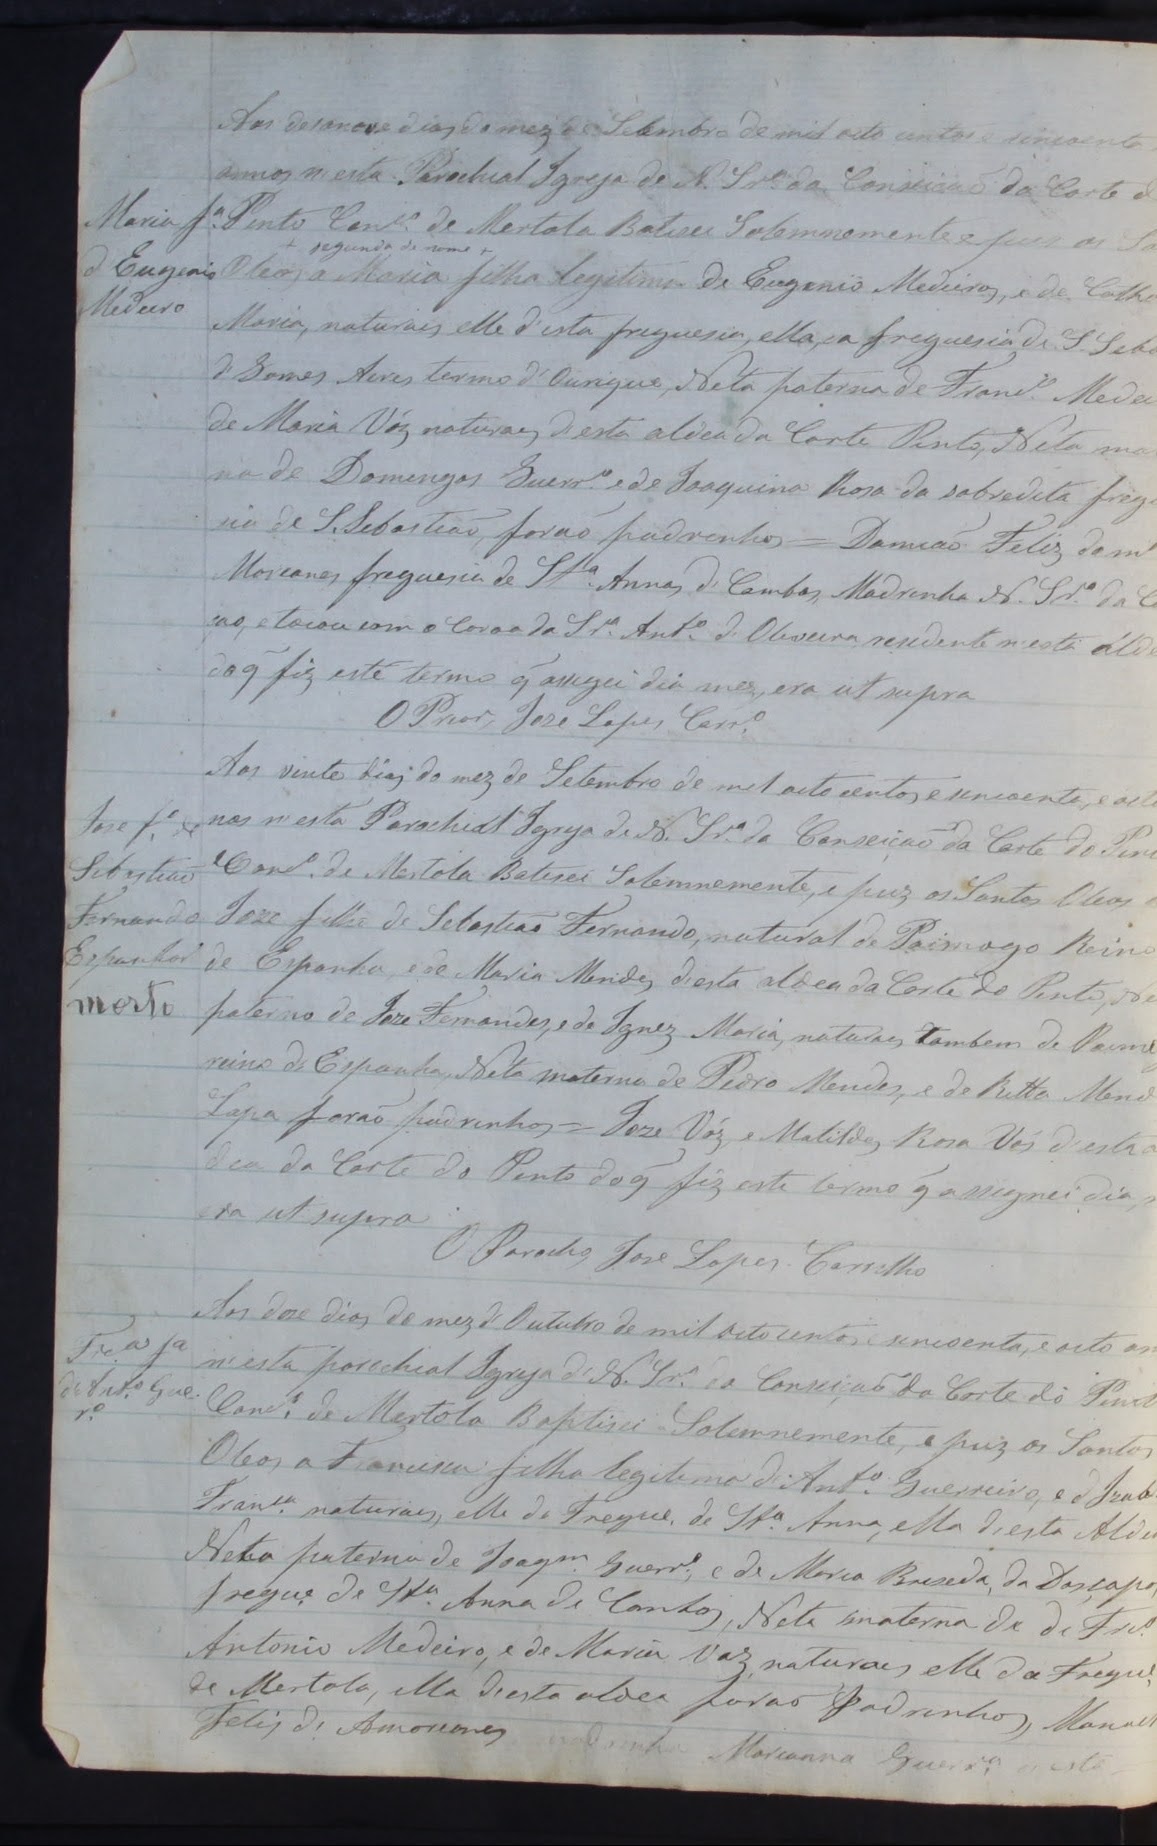 Aos desanove dias do mez de Setembro de mil oito centos e sincoenta
annos n'esta Parochial Igreja de N. Srª da Conseicaõ da Corte d
Maria fª
d'Eugenio
Medeiro
Pinto Concº de Mertola Batisei Solemnemente e puz os Sa
+ segunda de nome +
Oleos a Maria filha legitima de Eugenio Medeiros, e de Cathe
Maria, naturais elle d'esta freguesia, ella, da freguesia de S. Seba
d'Gomes Aires termo d'Ourique, Neta paterna de Francº Medei
de Maria Váz naturaes d'esta aldea da Corte Pinto, Neta ma
na de Domingos Guerrº e de Joaquina Rosa da sobredita fregu
sia de S. Sebastiaõ, foraõ padrinhos = Damiaõ Feliz do mᵉ
Moreanes freguesia de Stª Annas d'Cambas, Madrinha N. Srª da Co
çao, e tocou com a Coroa da Srª Antº d'Oliveira residente n'esta alde
do q̃ fiz este termo q̃ assignei dia mez, era ut supra
O Prior, Joze Lopes Carrº
Aos vinte dias do mez de Setembro de mil oito centos e sincoenta, e oito
José fº de
Sebastiaõ
Fernando
Espanhol
morto
nos n'esta Parochial Igreja de N. Srª da Conseiçaõ da Corte do Pin
Concº de Mertola Batisei Solemnemente, e puz os Santos Oleos a
Joze filho de Sebastiaõ Fernando, natural de Paimogo Reino
de Espanha, e de Maria Mendes d'esta aldea da Corte do Pinto, Ne
paterno de Joze Fernandes, e de Ignez Maria, naturaes tambem de Paimo
reino de Espanha, Neto materno de Pedro Mendes, e de Ritta Mend
Lapa foraõ padrinhos = Joze Váz e Matildes Rosa Vás d'esta a
dea da Corte do Pinto do q̃ fiz este termo q̃ assignei dia,
era ut supra
O Parocho, Joze Lopes Carrelho
Aos doze dias do mez d'Outubro de mil oito centos e sincoenta, e oito an
Frᶜª fª
de Antº Gue
rº
n'esta parochial Igreja d'N. Srª da Conseiçaõ da Corte do Pinto
Concº de Mertola Baptisei Solemnemente, e puz os Santos
Oleos a Francisca filha legitima d'Antº Guerreiro, e d'Izab
Francª naturaes, elle da Fregueª de Stª Anna, ella d'esta Aldea
Neta paterna de Joaqᵐ Guerrº, e de Maria Briseda, da
fregueª de Stª Anna de Cambas, Neta materna de de Frcº
Antonio Medeiro, e de Maria Vaz, naturaes elle da Fregueª
de Mertola, ella d'esta aldea foraõ Padrinhos, Manoel
Felis d'Amoreanes madrinha Marianna Guerrª d'esta